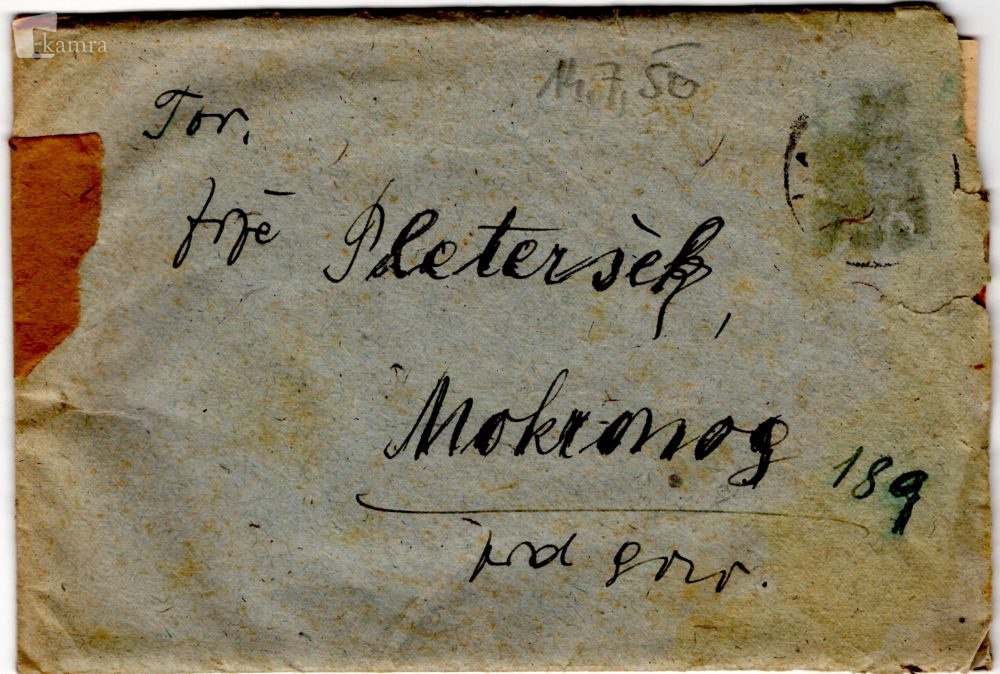 kamra
14.7.50
Tov.
Pleteršek,
Mokronog 189
pod goro.